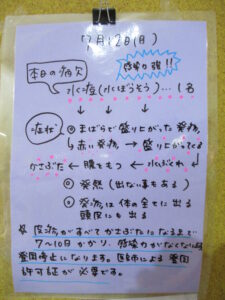 7月12日(月)
感染力強!!
本日の病欠
水痘(水ぼうそう)…1名
症状
◎まばらで盛り上がった発疹
赤い発疹 → 盛り上がってくる
かさぶた ← 膿をもつ ← 水ぶくれ
◎発熱(出ない事もある)
◎発疹は体の全てに出る
頭皮にも出る
発疹がすべてかさぶたになるまで
7〜10日かかり、感染力がなくなるまで
登園停止になります。医師による登園
許可証が必要です。